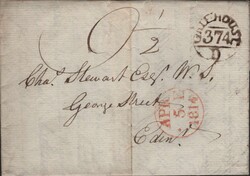 9 1/2
374
D
Chas. Stewart Esqr. W.S.
George Street
Edinr.
APR
5
1814